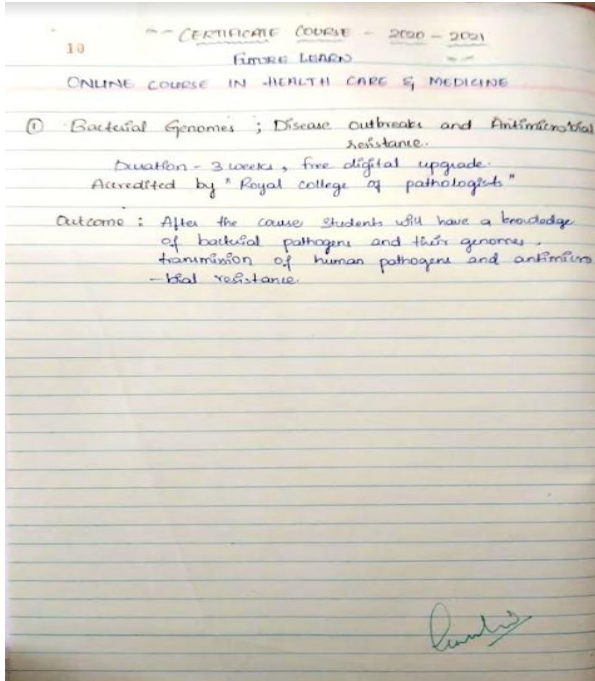 10
CERTIFICATE COURSE - 2020 - 2021
FUTURE LEARN
ONLINE COURSE IN HEALTH CARE & MEDICINE
① Bacterial Genomes ; Disease outbreaks and Antimicrobial
resistance.
Duration - 3 weeks, free digital upgrade.
Accredited by "Royal college of pathologists"
Outcome : After the cause students will have a knowledge
of bacterial pathogens and their genomes,
transmission of human pathogens and antimicro
-bial resistance.